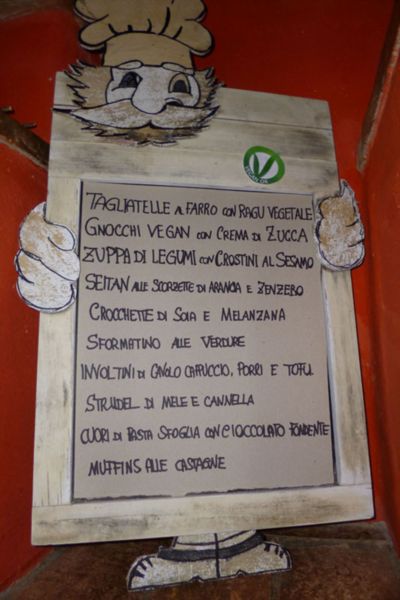 VEGAN OK
TAGLIATELLE AL FARRO CON RAGU VEGETALE
GNOCCHI VEGAN CON CREMA DI ZUCCA
ZUPPA DI LEGUMI CON CROSTINI AL SESAMO
SEITAN ALLE SCORZETTE DI ARANCIA E ZENZERO
CROCCHETTE DI SOIA E MELANZANA
SFORMATINO ALLE VERDURE
INVOLTINI DI CAVOLO CAPPUCCIO, PORRI E TOFU
STRUDEL DI MELE E CANNELLA
CUORI DI PASTA SFOGLIA CON CIOCCOLATO FONDENTE
MUFFINS ALLE CASTAGNE